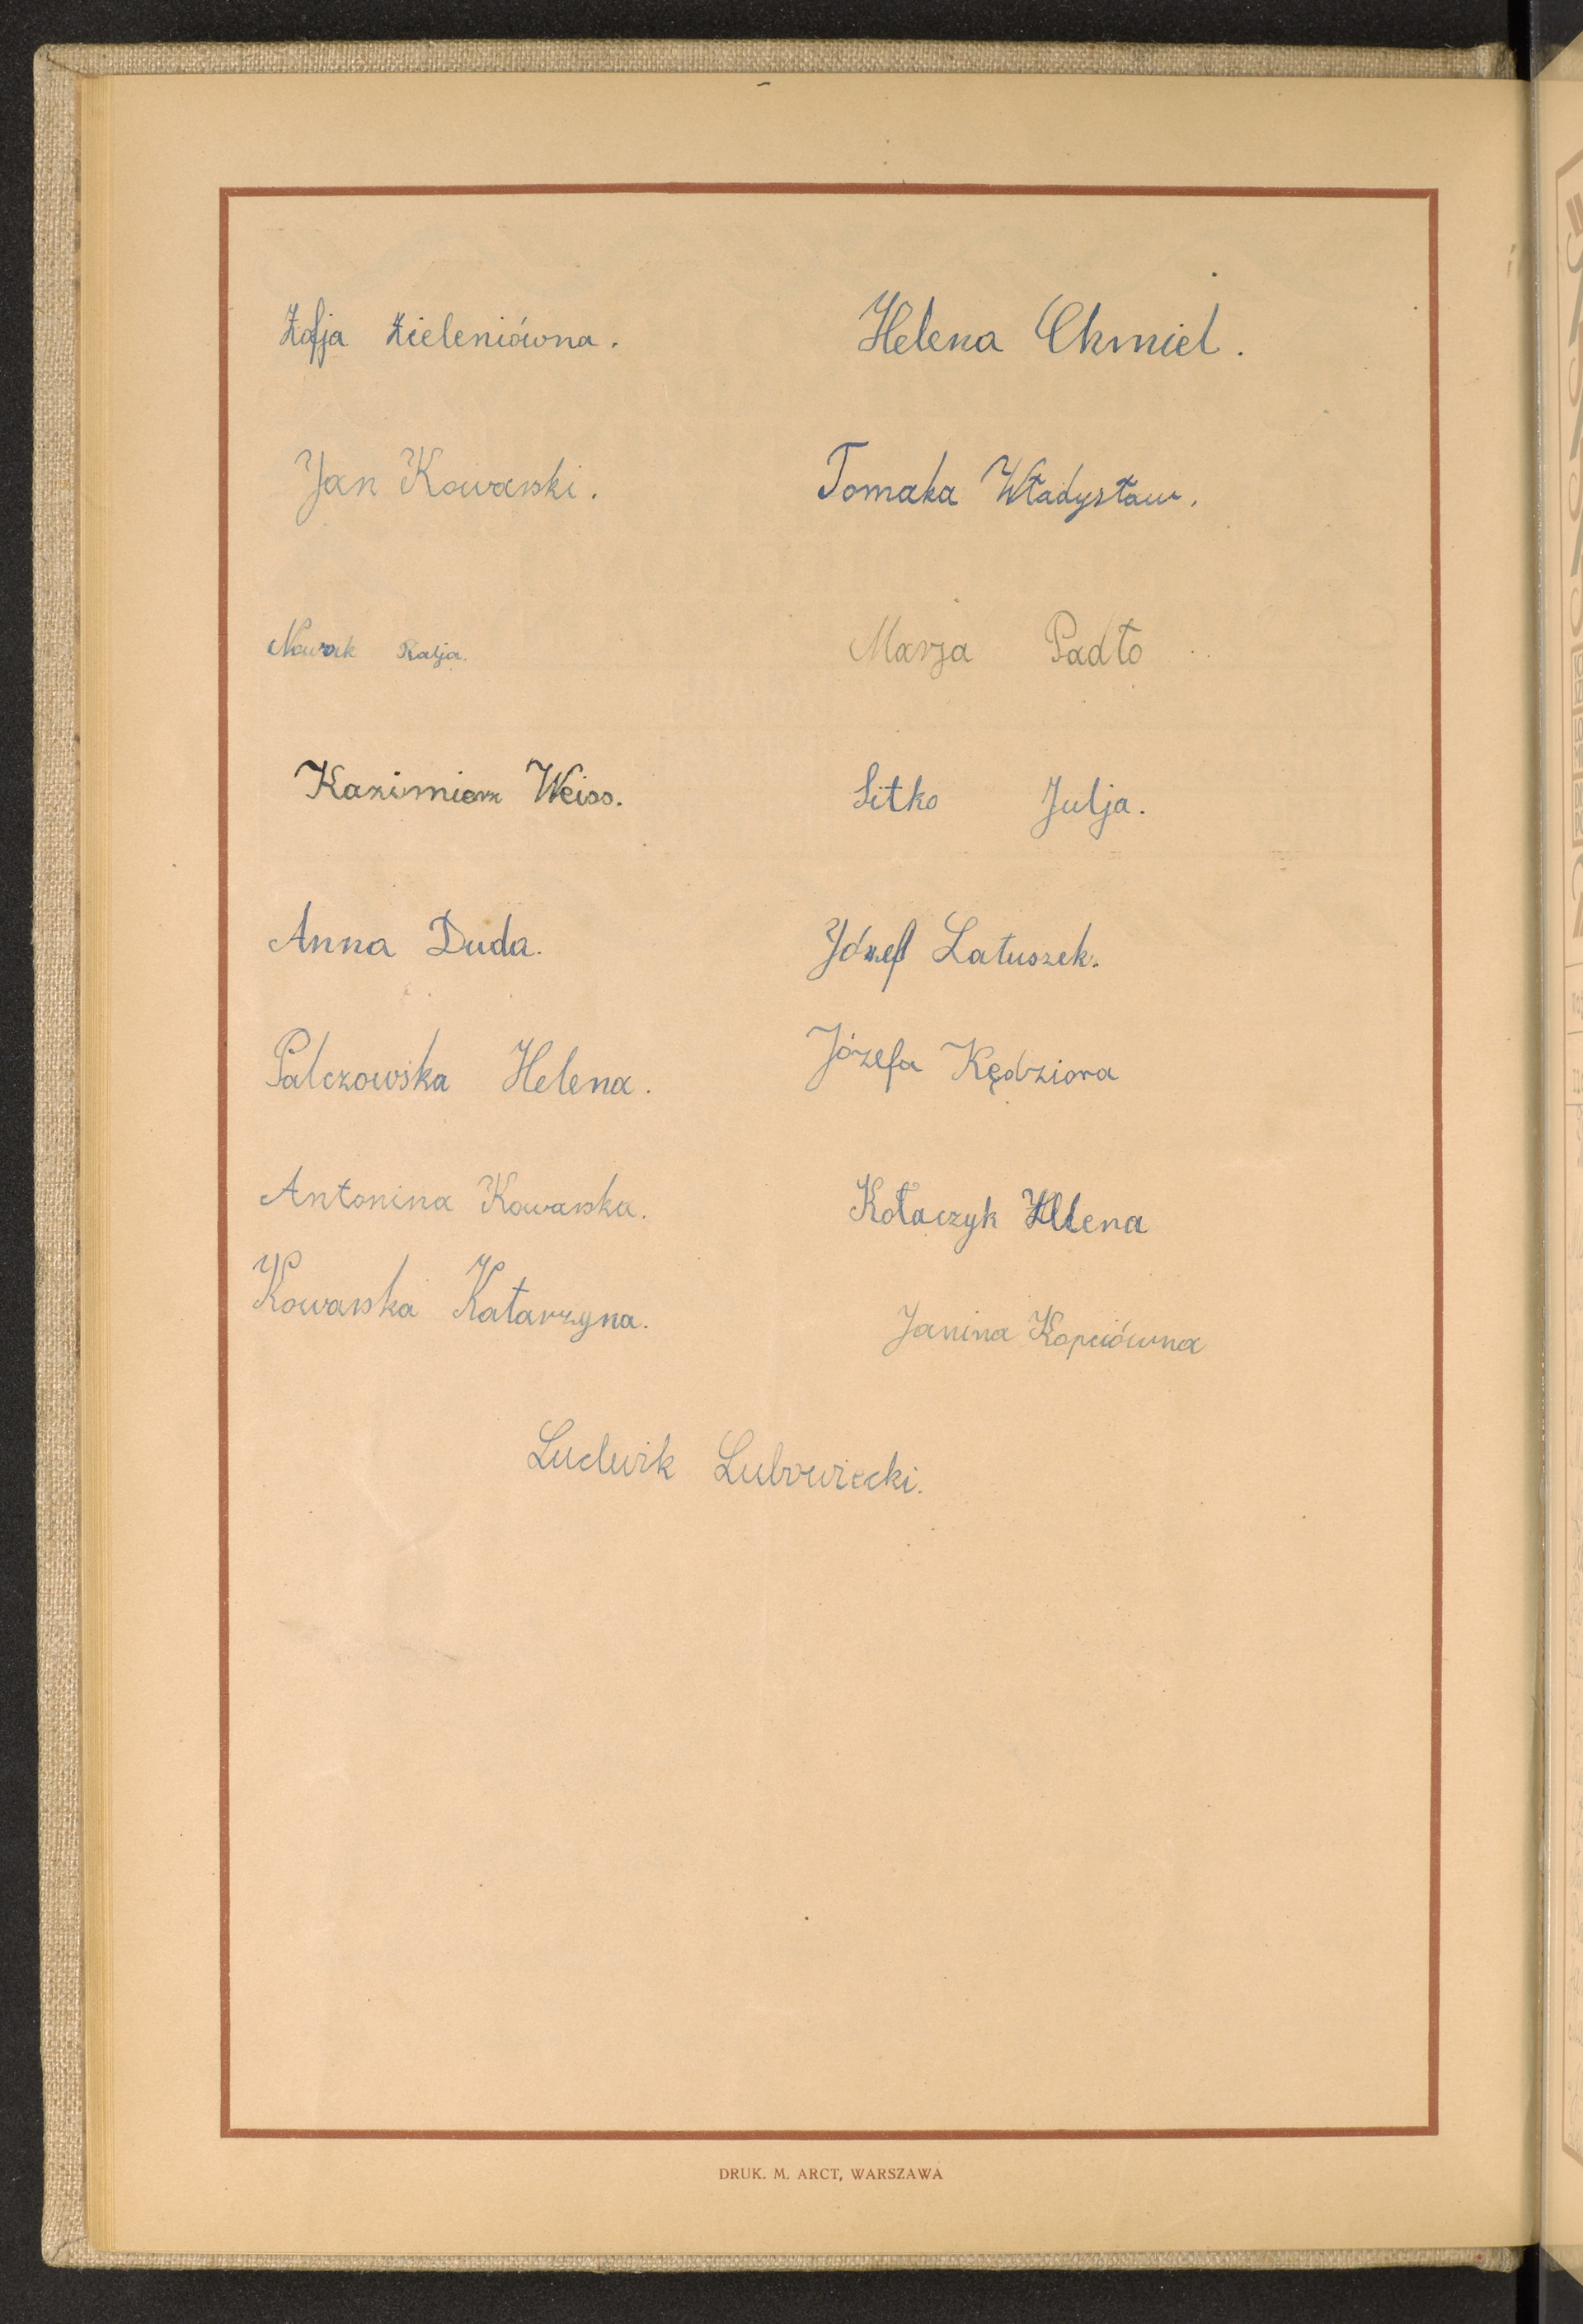 Zofja Zieleniówna.
Helena Chmiel.
Jan Kowarski.
Tomaka Władysław.
Nowak
Marja Padło
Kazimierz Weiss.
Sitko Julja.
Anna Duda.
Józef Łatuszek.
Palczowska Helena.
Józefa Kędziora
Antonina Kowarska.
Kołaczyk Helena
Kowarska Katarzyna.
Janina Kopciówna
Ludwik Lubowiecki.
DRUK. M. ARCT, WARSZAWA